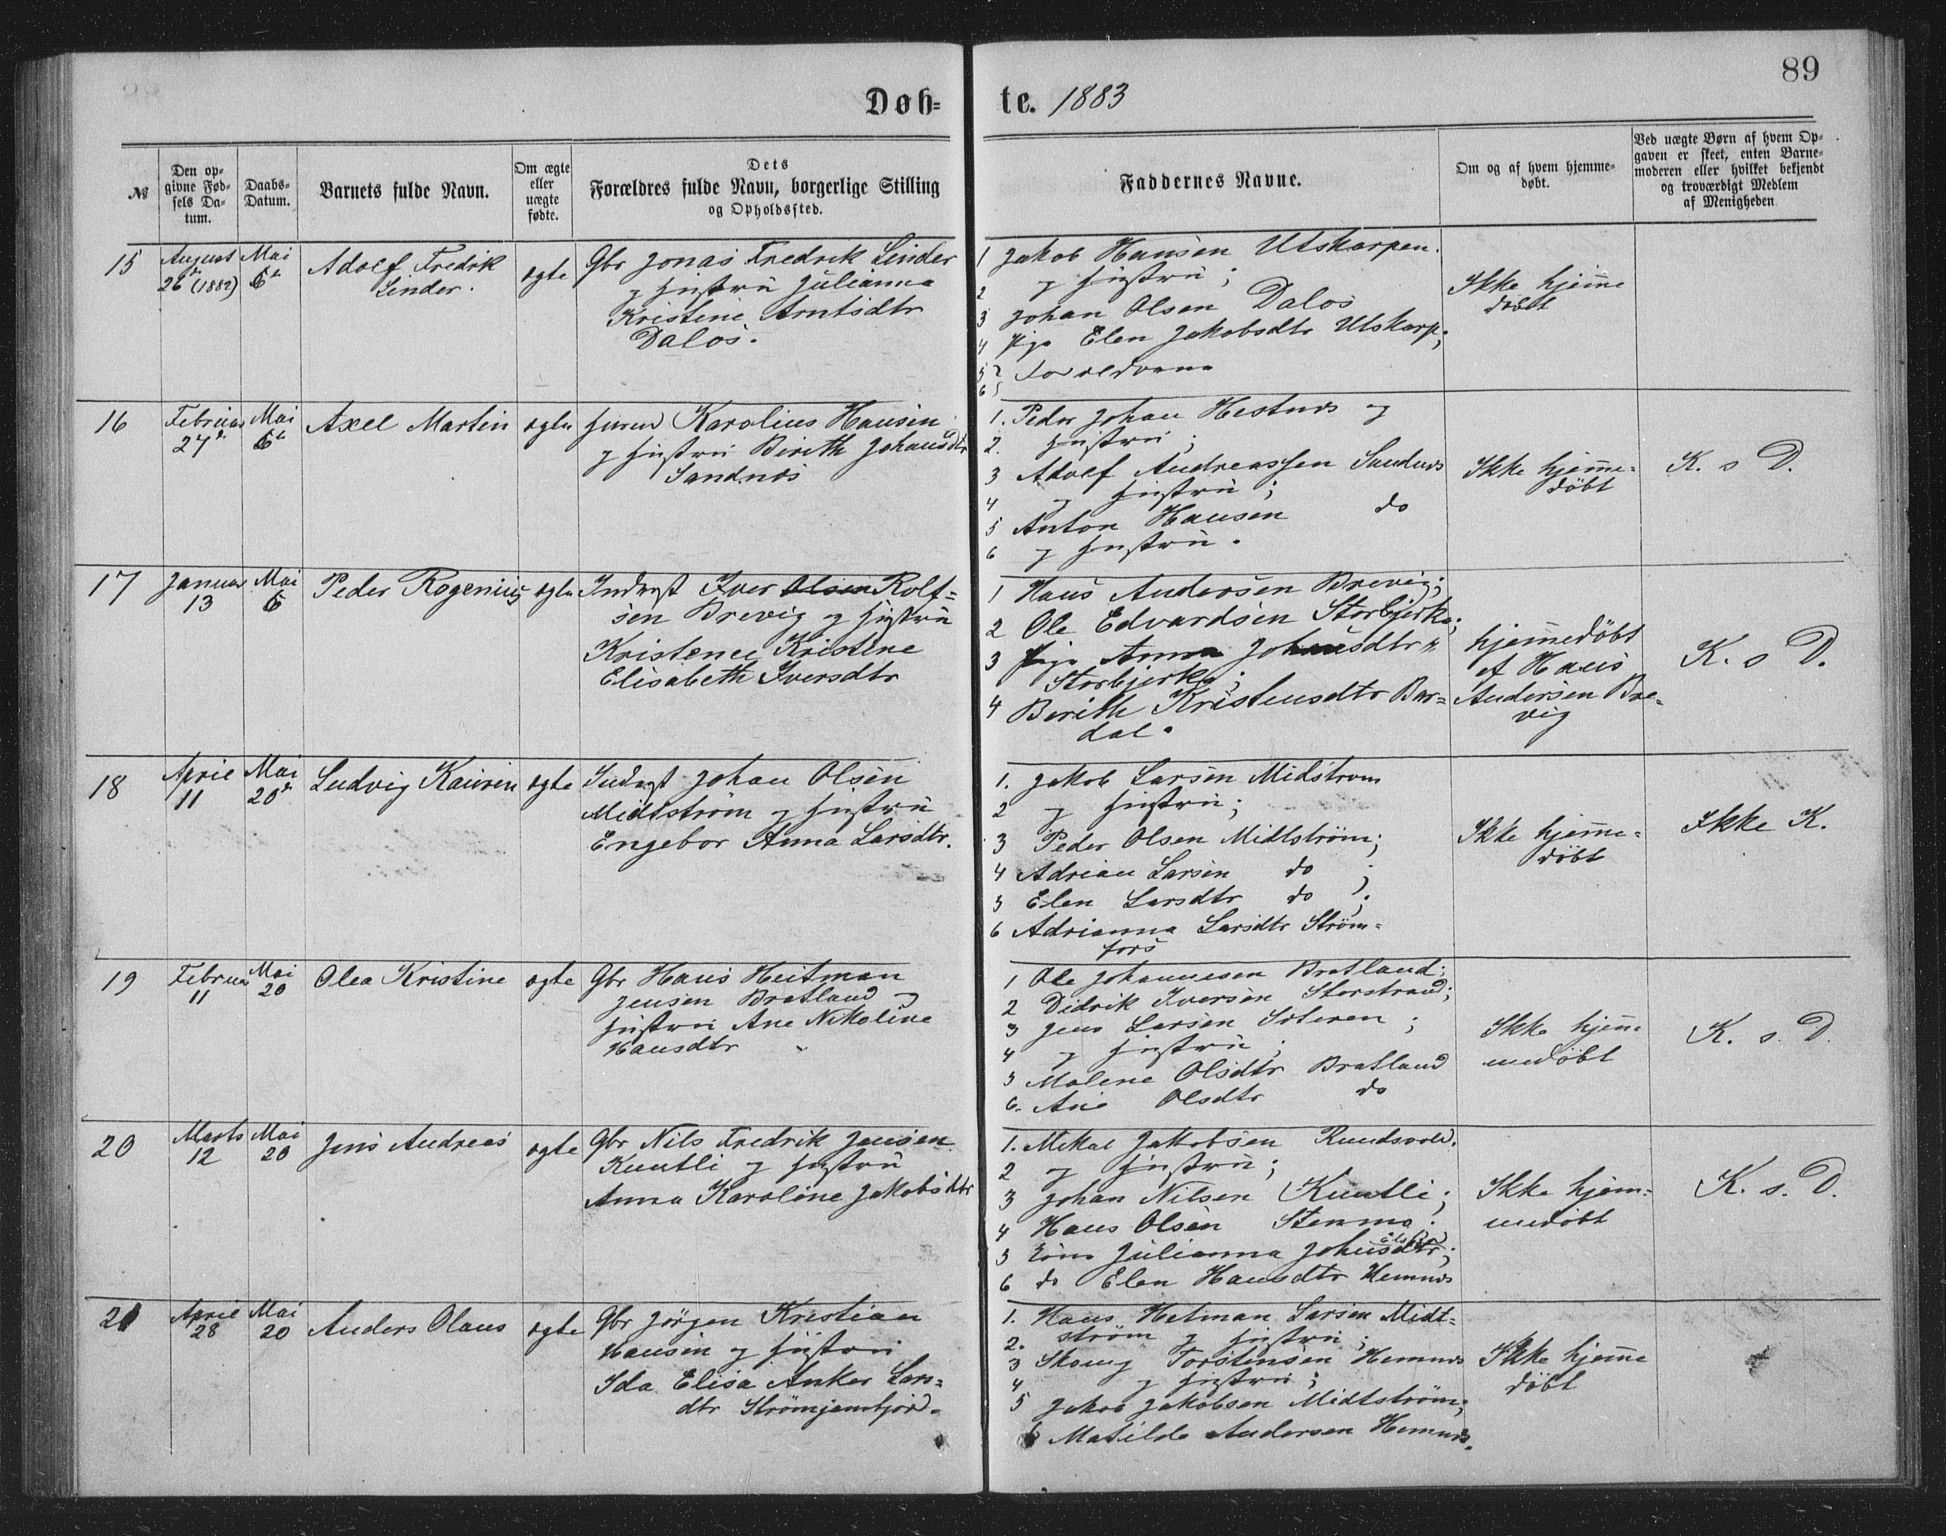 89
Døb-te. 1883
№
Den op-
givne Fød-
sels Da-
tum.
Daabs-
Datum.
Barnets fulde Navn.
Om ægte
eller
uægte
fødte.
Dets
Forældres fulde Navn, borgerlige Stilling
og Opholdssted.
Faddernes Navne.
Om og af hvem hjemme-
døbt.
Ved uægte Børn af hvem Op-
gaven er skeet, enten Barne-
moderen eller hvilket bekjendt
og troværdigt Medlem
af Menigheden
15
August
26 (1882)
Mai
6te
Adolf Fredrik
Linder.
ægte
Gbr Jonas Fredrik Linder
og Hustru Julianna
Kristine Arntsdtr
Dalos.
1 Jakob Hansen Utskarpen.
2 og Hustru;
3 Johan Olsen Dalos
4 Pige Elen Jakobsdtr Utskarp;
5
6 Forældrene
Ikke hjemme
døbt
16
Februar
27de
Mai
6te
Axel Martin
ægte
Karolius Hansen
og Hustru Birith Johansdtr
Sandnæs
1. Peder Johan Hestnæs og
2. Hustru;
3 Adolf Andreassen Sandnæs
4 og Hustru;
5 Anton Hansen do
6 og Hustru.
Ikke hjemme-
døbt
K. s D.
17
Januar
13
Mai
6
Peder Rogenius
ægte
Inderst Iver Olsen Rolf-
sen Brevig og Hustru
Kristine
Elisabeth Iversdtr
1 Hans Andersen Brevig;
2 Ole Edvardsen Storbjerka;
3 Pige Anna Johansdtr
Storbjerka;
4 Berith Kristensdtr Bar-
dal.
hjemmedøbt
af Hans
Andersen Bre-
vig
K. s D.
18
April
11
Mai
20de
Ludvig Kaurin
ægte
Inderst Johan Olsen
Midtstrøm og Hustru
Engebor Anna Larsdtr.
1. Jakob Larsen Midstrøm
2 og Hustru;
3 Peder Olsen Midtstrøm;
4 Adrian Larsen do ;
5 Elen Larsdtr do ;
6 Adrianna Larsdtr Strøm-
fors
Ikke hjemme-
døbt
Ikke K.
19
Februar
11
Mai
20
Olea Kristine
ægte
Gbr Hans Heitman
Jensen Bratland og
Hustru Ane Nikoline
Hansdtr
1 Ole Johannesen Bratland;
2 Didrik Iversen Storstrand;
3 Jens Larsen Sæteren ;
4 og Hustru;
5 Malene Olsdtr Bratland
6. Ane Olsdtr do
Ikke hjem
medøbt
K. s. D.
20
Marts
12
Mai
20
Jens Andreas
ægte
Gbr Nils Fredrik Jensen
Kuntli og Hustru
Anna Karoline Jakobsdtr
1. Mikal Jakobsen Rundsvold.
2 og Hustru;
3 Johan Nilsen Kuntli;
4 Hans Olsen Stenmo.
5 Julianna Johnsdtr;
6 do Elen Hansdtr Hemnæs
Ikke hjem-
medøbt
K. s. D.
21
April
28
Mai
20
Anders Olaus
ægte
Gbr Jörgen Kristian
Hansen og Hustru
Ida Elisa Anker Lars-
dtr
1. Hans Hetman Larsen Midt-
2. strøm og Hustru;
3 Torstensen Hemnæs
4 og Hustru;
5 Jakob Jakobsen Midtstrøm;
6 Matilde Andersen Hemnæs.
Ikke hjemme
døbt